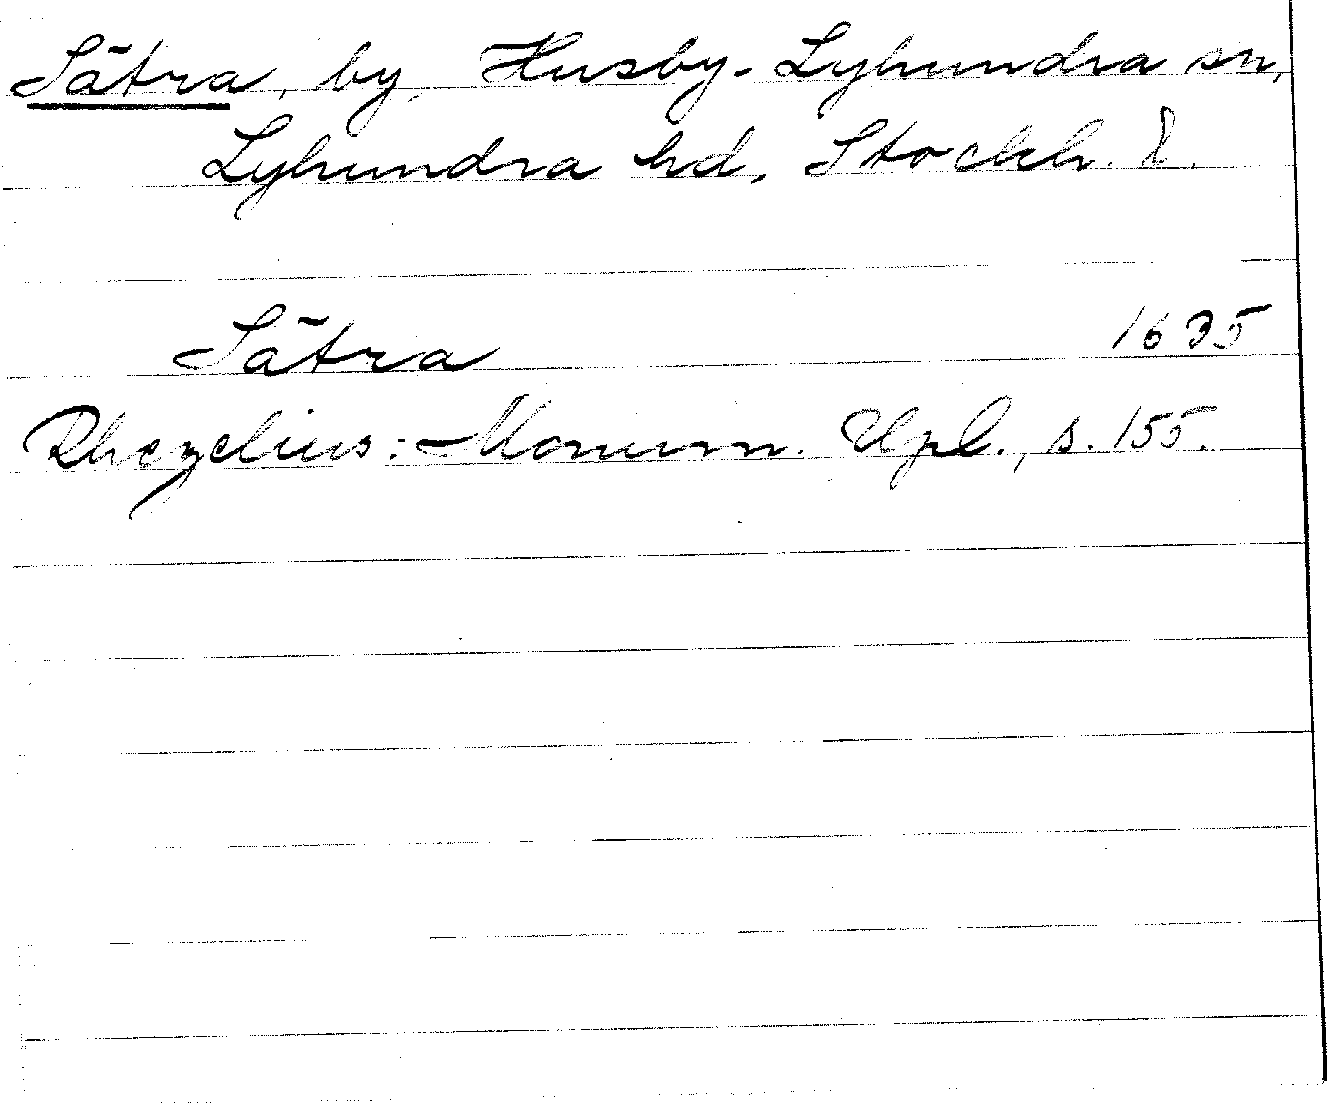 Sätra, by, Husby-Lyhundra sn,
Lyhundra hd, Stockh. l.
Sätra 1635
Rhezelius: Monum. Upl., s. 155.